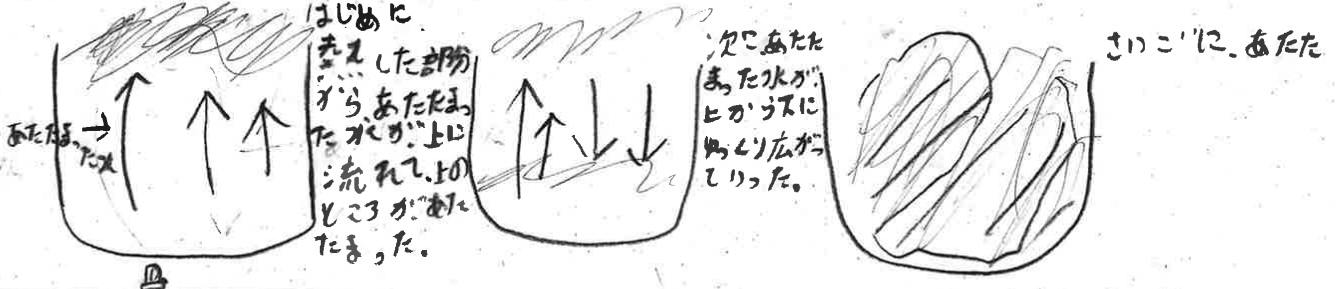 あたたまった水
はじめに
熱した部分
から、あたたまっ
た水が上に
流れて、上の
ところがあた
たまった。
次にあたた
まった水が、
上から下に
ゆっくり広がっ
ていった。
さいごに、あたた